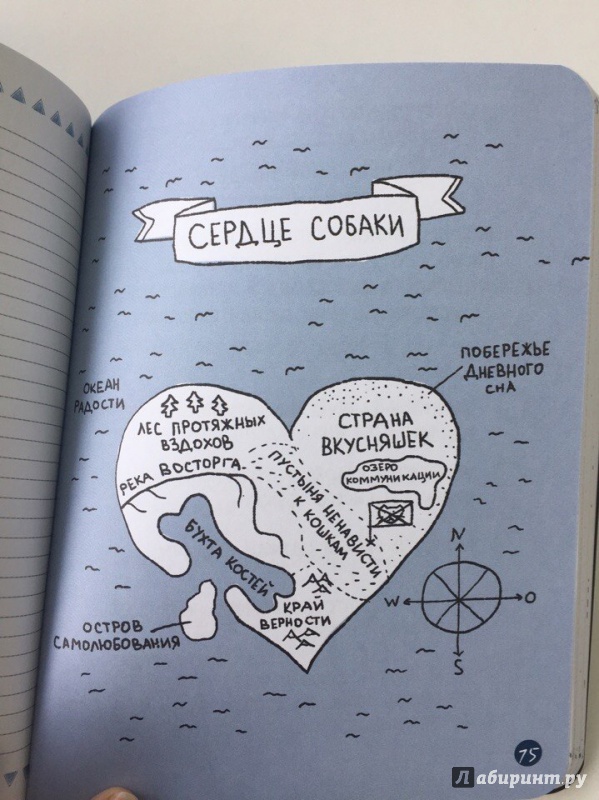 СЕРДЦЕ СОБАКИ
ПОБЕРЕЖЬЕ
ДНЕВНОГО
СНА
ОКЕАН
РАДОСТИ
ЛЕС ПРОТЯЖНЫХ
ВЗДОХОВ
СТРАНА
ВКУСНЯШЕК
РЕКА ВОСТОРГА
ОЗЕРО
КОММУНИКАЦИИ
ПУСТЫНЯ НЕНАВИСТИ
К КОШКАМ
БУХТА КОСТЕЙ
КРАЙ
ВЕРНОСТИ
ОСТРОВ
САМОЛЮБОВАНИЯ
N
W
O
S
75
Лабиринт.ру